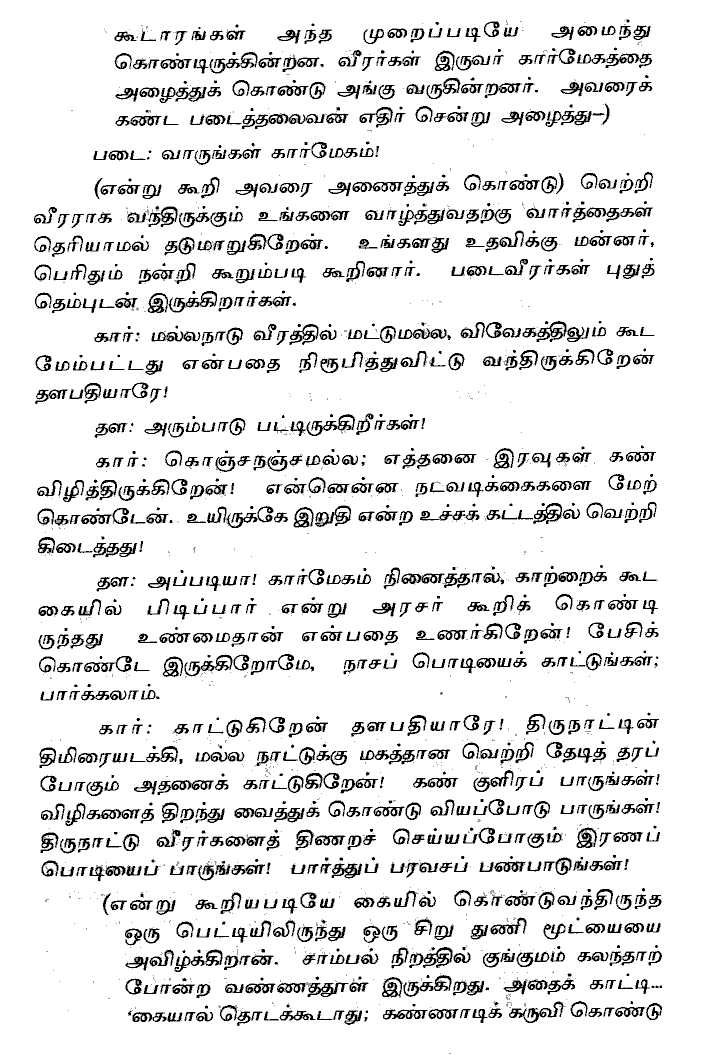 கூடாரங்கள் அந்த முறைப்படியே அமைந்து
கொண்டிருக்கின்றன. வீரர்கள் இருவர் கார்மேகத்தை
அழைத்துக் கொண்டு அங்கு வருகின்றனர். அவரைக்
கண்ட படைத்தலைவன் எதிர் சென்று அழைத்து—)
படை: வாருங்கள் கார்மேகம்!
(என்று கூறி அவரை அணைத்துக் கொண்டு) வெற்றி
வீரராக வந்திருக்கும் உங்களை வாழ்த்துவதற்கு வார்த்தைகள்
தெரியாமல் தடுமாறுகிறேன். உங்களது உதவிக்கு மன்னர்,
பெரிதும் நன்றி கூறும்படி கூறினார். படைவீரர்கள் புதுத்
தெம்புடன் இருக்கிறார்கள்.
கார்: மல்லநாடு வீரத்தில் மட்டுமல்ல, விவேகத்திலும் கூட
மேம்பட்டது என்பதை நிரூபித்துவிட்டு வந்திருக்கிறேன்
தளபதியாரே!
தள: அரும்பாடு பட்டிருக்கிறீர்கள்!
கார்: கொஞ்சநஞ்சமல்ல; எத்தனை இரவுகள் கண்
விழித்திருக்கிறேன்! என்னென்ன நடவடிக்கைகளை மேற்
கொண்டேன். உயிருக்கே இறுதி என்ற உச்சக் கட்டத்தில் வெற்றி
கிடைத்தது!
தள: அப்படியா! கார்மேகம் நினைத்தால், காற்றைக் கூட
கையில் பிடிப்பார் என்று அரசர் கூறிக் கொண்டி
ருந்தது உண்மைதான் என்பதை உணர்கிறேன்! பேசிக்
கொண்டே இருக்கிறோமே, நாசப் பொடியைக் காட்டுங்கள்;
பார்க்கலாம்.
கார்: காட்டுகிறேன் தளபதியாரே! திருநாட்டின்
திமிரையடக்கி, மல்ல நாட்டுக்கு மகத்தான வெற்றி தேடித் தரப்
போகும் அதனைக் காட்டுகிறேன்! கண் குளிரப் பாருங்கள்!
விழிகளைத் திறந்து வைத்துக் கொண்டு வியப்போடு பாருங்கள்!
திருநாட்டு வீரர்களைத் திணறச் செய்யப்போகும் இரணப்
பொடியைப் பாருங்கள்! பார்த்துப் பரவசப் பண்பாடுங்கள்!
(என்று கூறியபடியே கையில் கொண்டுவந்திருந்த
ஒரு பெட்டியிலிருந்து ஒரு சிறு துணி மூட்யையை
அவிழ்க்கிறான். சாம்பல் நிறத்தில் குங்குமம் கலந்தாற்
போன்ற வண்ணத்தூள் இருக்கிறது. அதைக் காட்டி...
'கையால் தொடக்கூடாது; கண்ணாடிக் கருவி கொண்டு